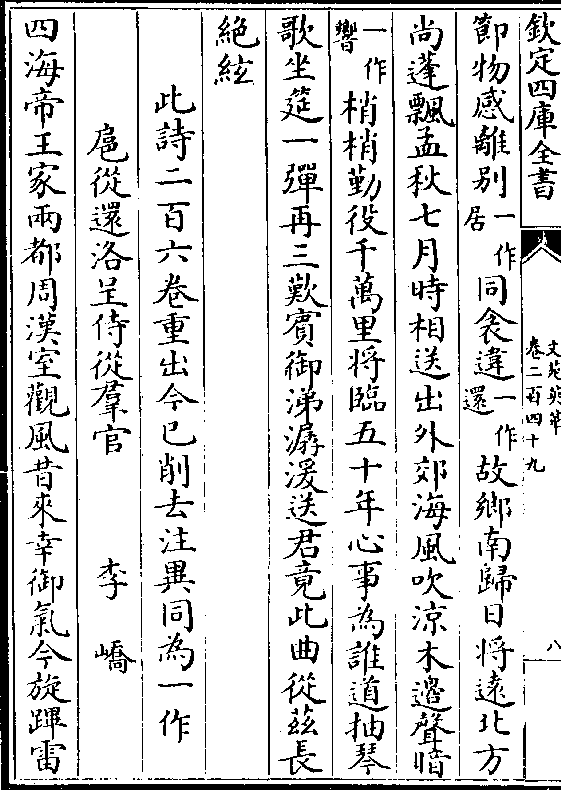 欽定四庫全書
文苑英華
卷二百四十九
八
節物感離別一作居同衾違一作還故鄉南歸日将遠北方
尚蓬飄孟秋七月時相送出外郊海風吹涼木邉聲暗
一作響梢梢勤役千萬里将臨五十年心事為誰道抽琴
歌坐筵一彈再三歎賓御涕潺湲送君竟此曲從兹長
絶絃
此詩二百六卷重出今已削去注異同為一作
扈從還洛呈侍從羣官 李嶠
四海帝王家兩都周漢室觀風昔來幸御氣今旋蹕雷